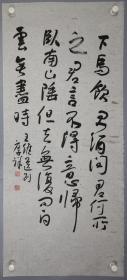 下馬飲君酒問君何所
之君言不得意歸
臥南山陲但去莫復問白
雲無盡時
王維送別